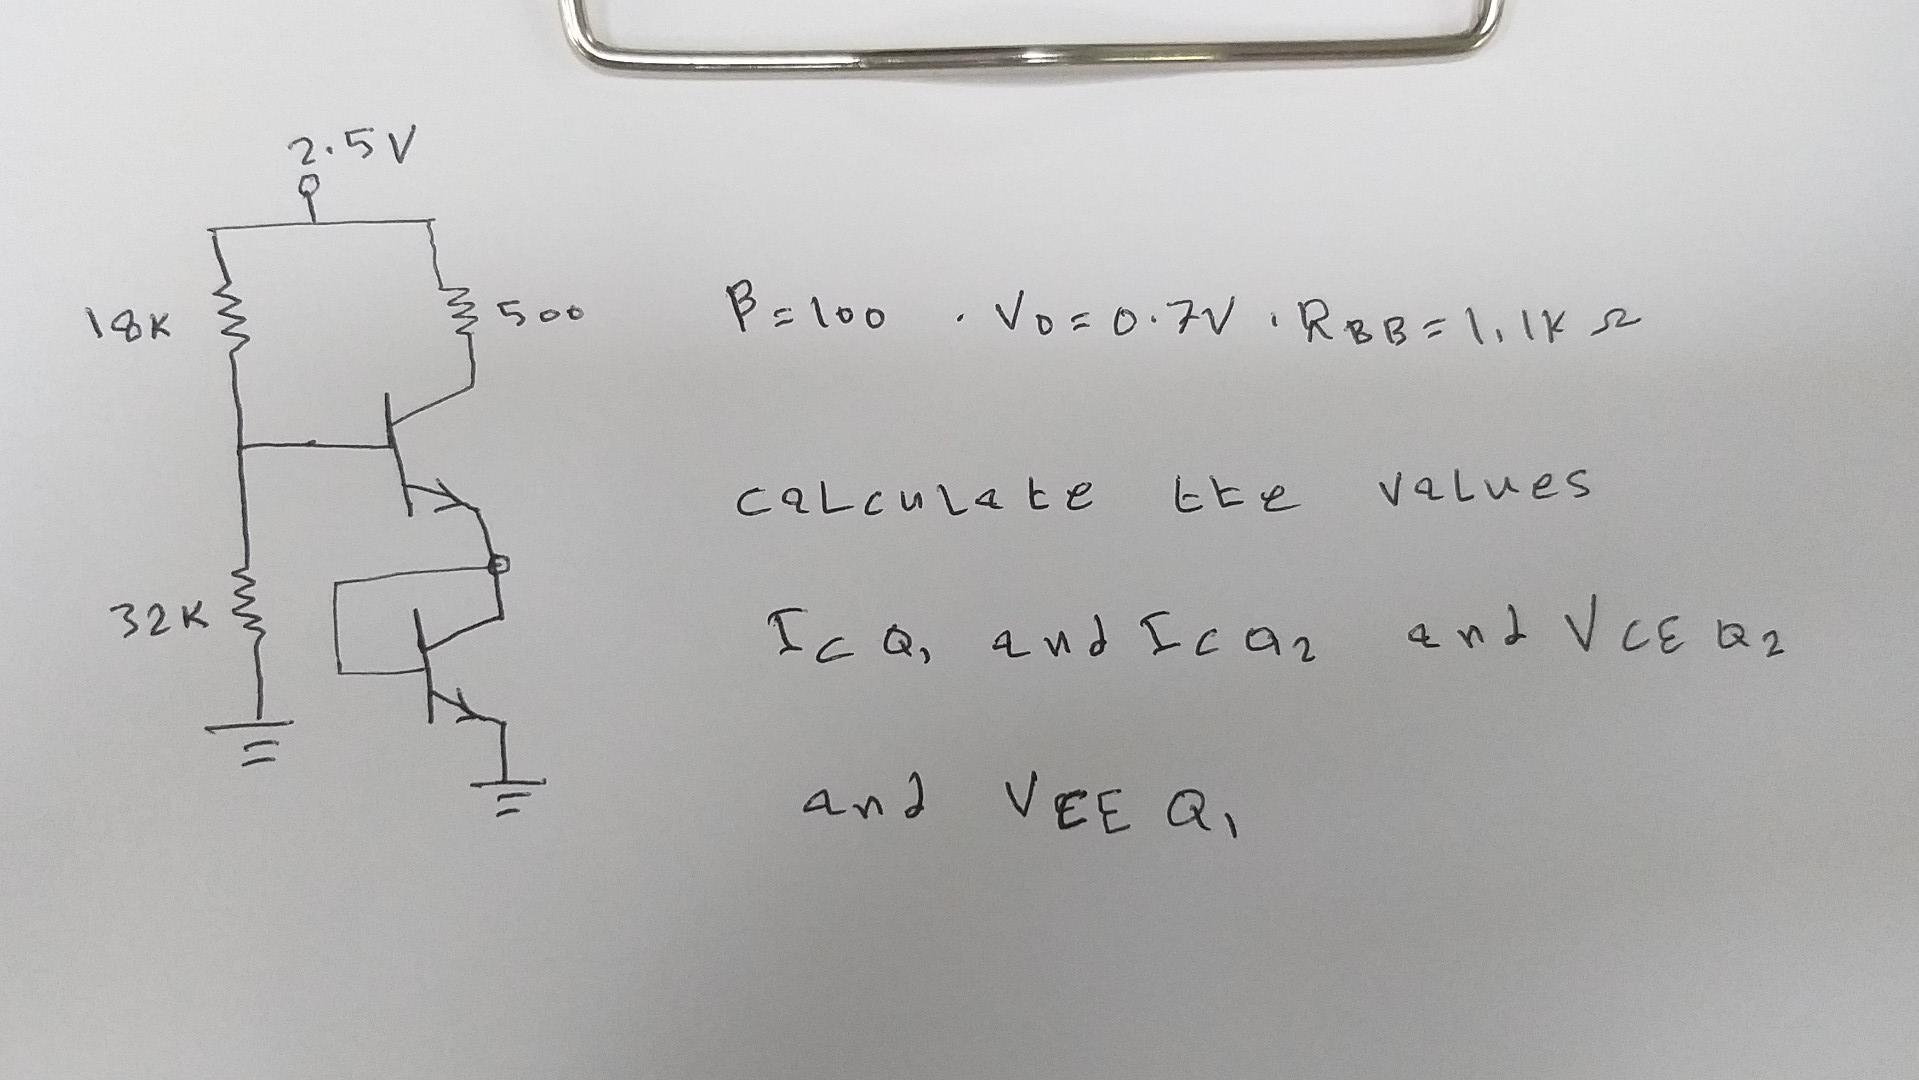 2.5V
18K
500
32K
β=100 . VD=0.7V . RBB=1.1K Ω
calculate the values
IC Q1 and IC Q2 and VCE Q2
and VEE Q1